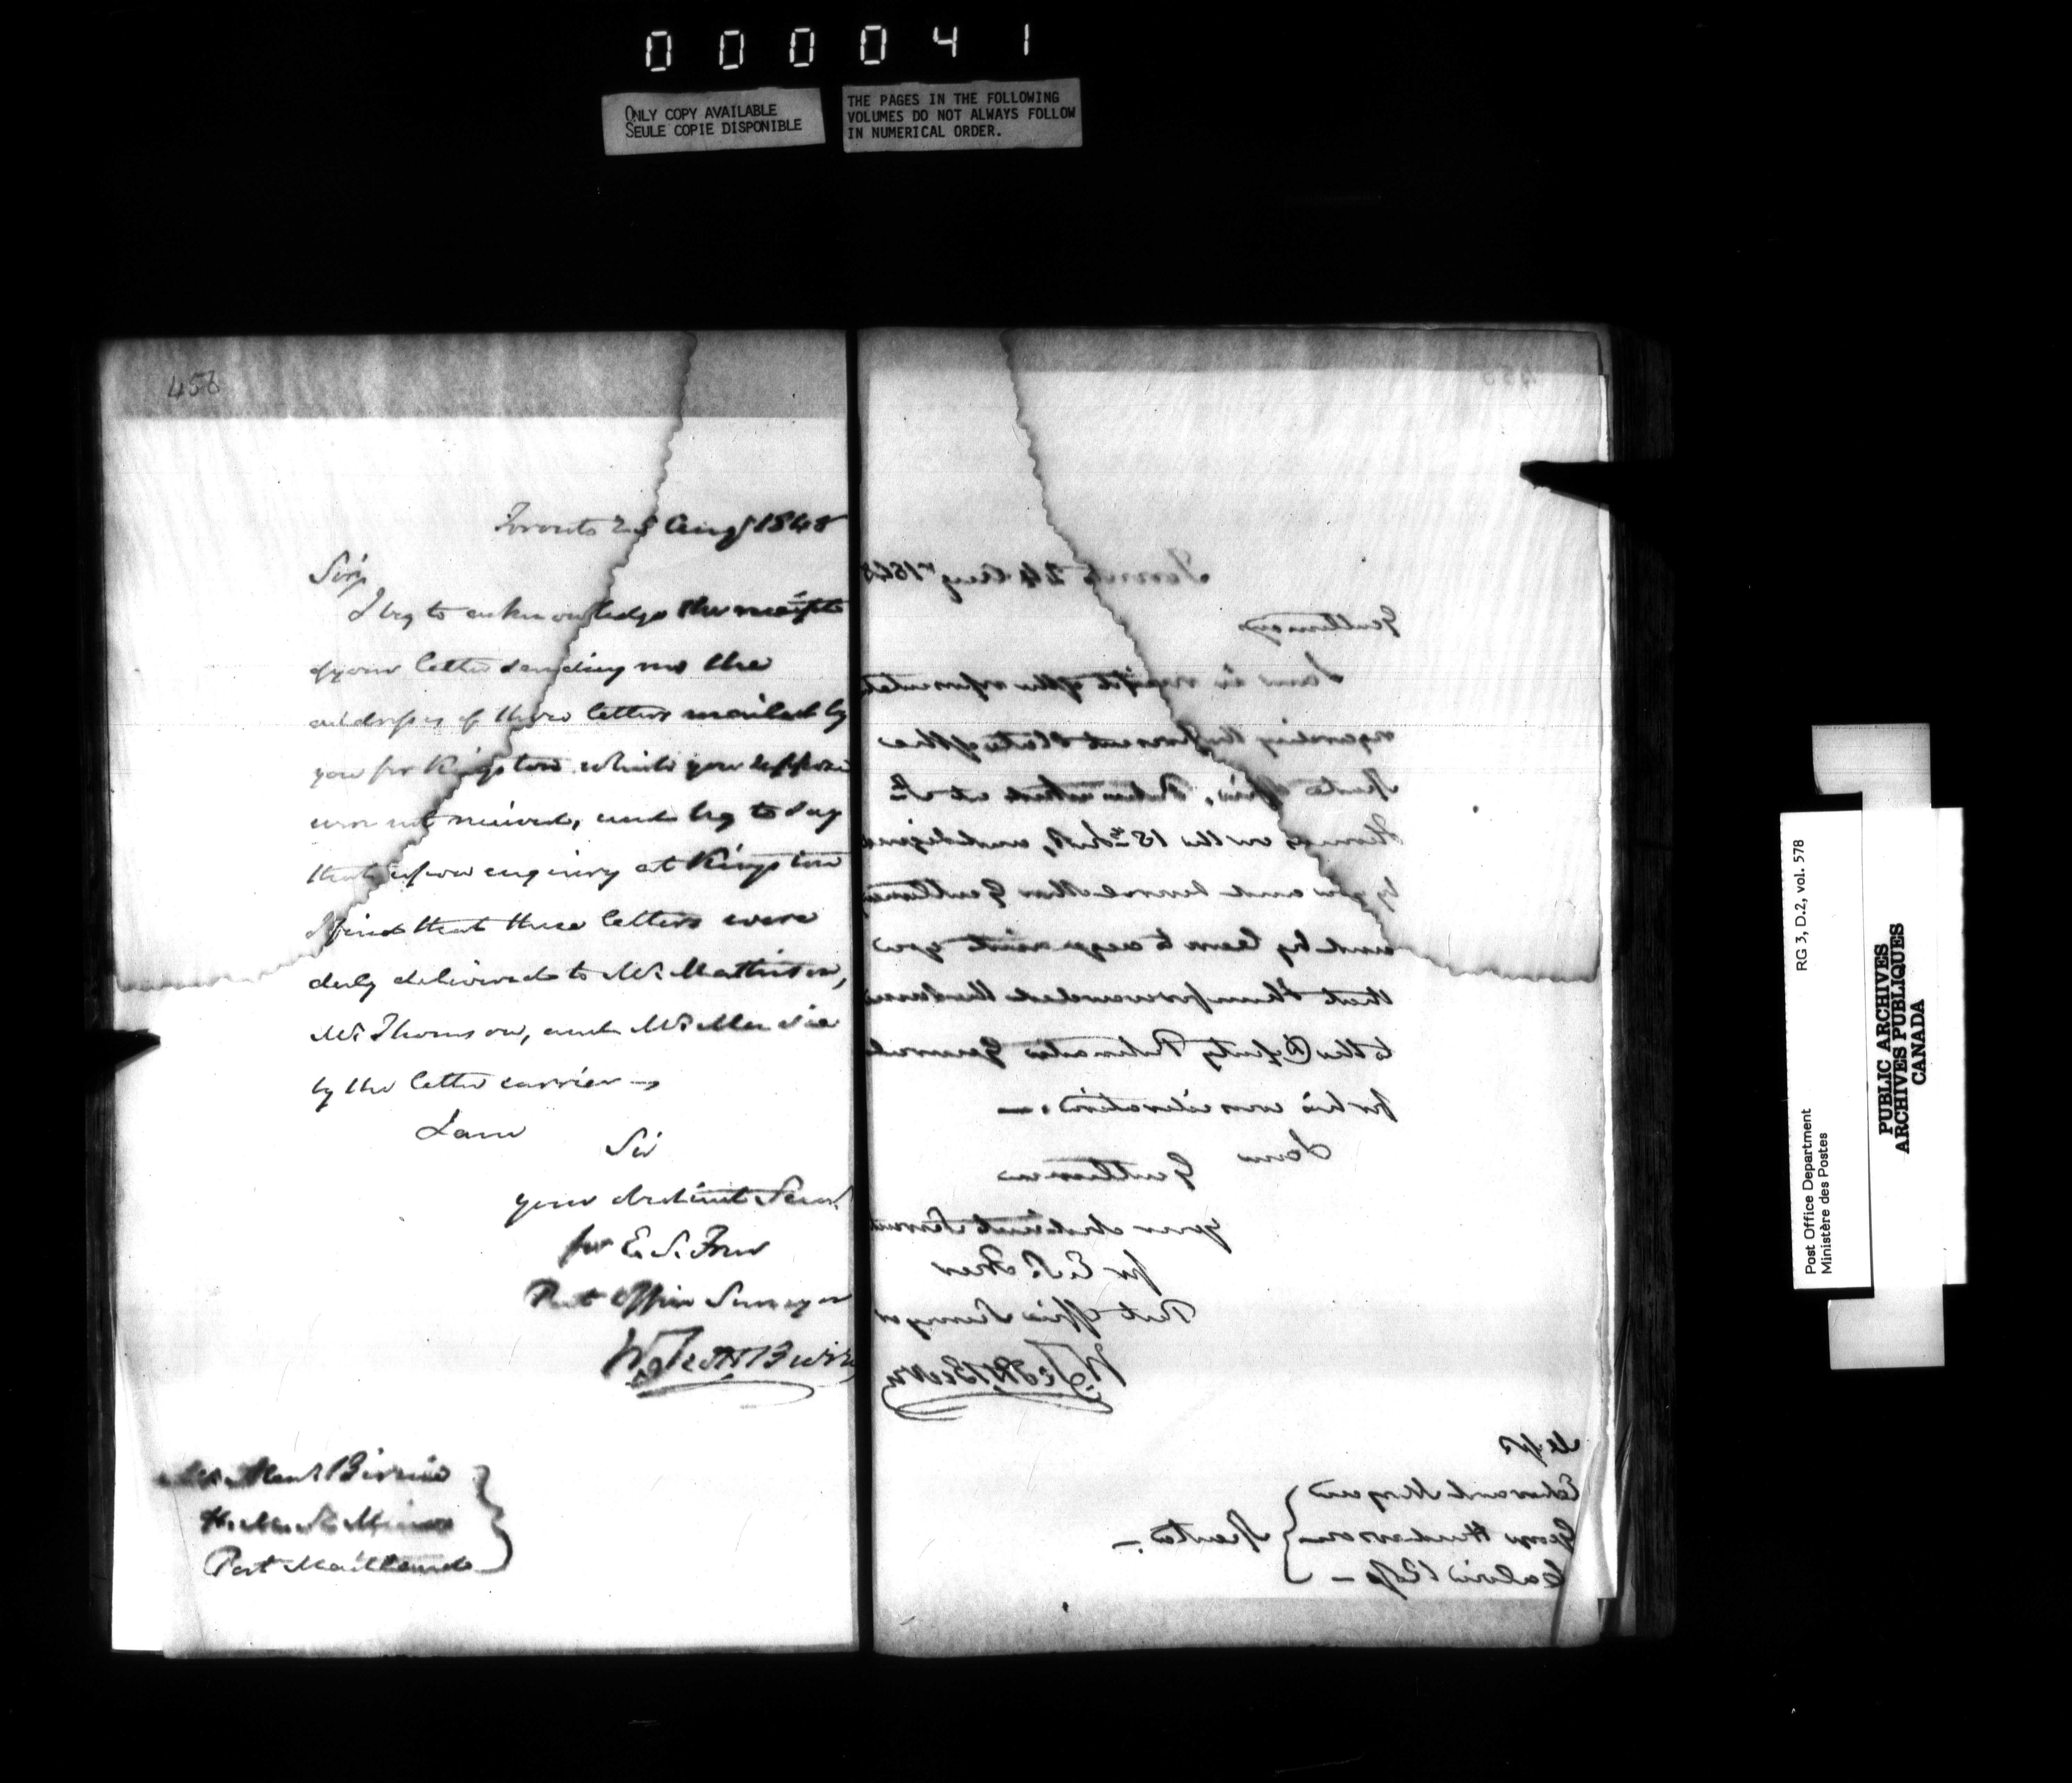 000041
ONLY COPY AVAILABLE
SEULE COPIE DISPONIBLE
THE PAGES IN THE FOLLOWING
VOLUMES DO NOT ALWAYS FOLLOW
IN NUMERICAL ORDER.
456
Toronto 25 Augt 1848
Sir,
I beg to acknowledge the receipt
of your letter sending me the
address of three letters mailed by
you for Kingston which you suppose
were not received, and beg to say
that upon enquiry at Kingston
I find that these letters were
duly delivered to Mr. Mathison,
Mr. Thomson, and Mr.
by the letter carrier
I am
Sir
your obedient Servt
for E. S. Freer
Post Office Surveyor
Port Maitland
Toronto 24 Augt 1848
Gentlemen
I am in receipt of the
regarding the present state of the
Office, at St
Thomas on the 18th Inst,
by you and several other Gentlemen
and beg leave to acquaint you
that I have forwarded the same
to the Deputy Postmaster General
for his consideration.—
I am
Gentlemen
your obedient Servant
for E. S. Freer
Post Office Surveyor
Messrs
Edward
George Henderson
Calvin
RG 3, D.2, vol. 578
Post Office Department
Ministère des Postes
PUBLIC ARCHIVES
ARCHIVES PUBLIQUES
CANADA